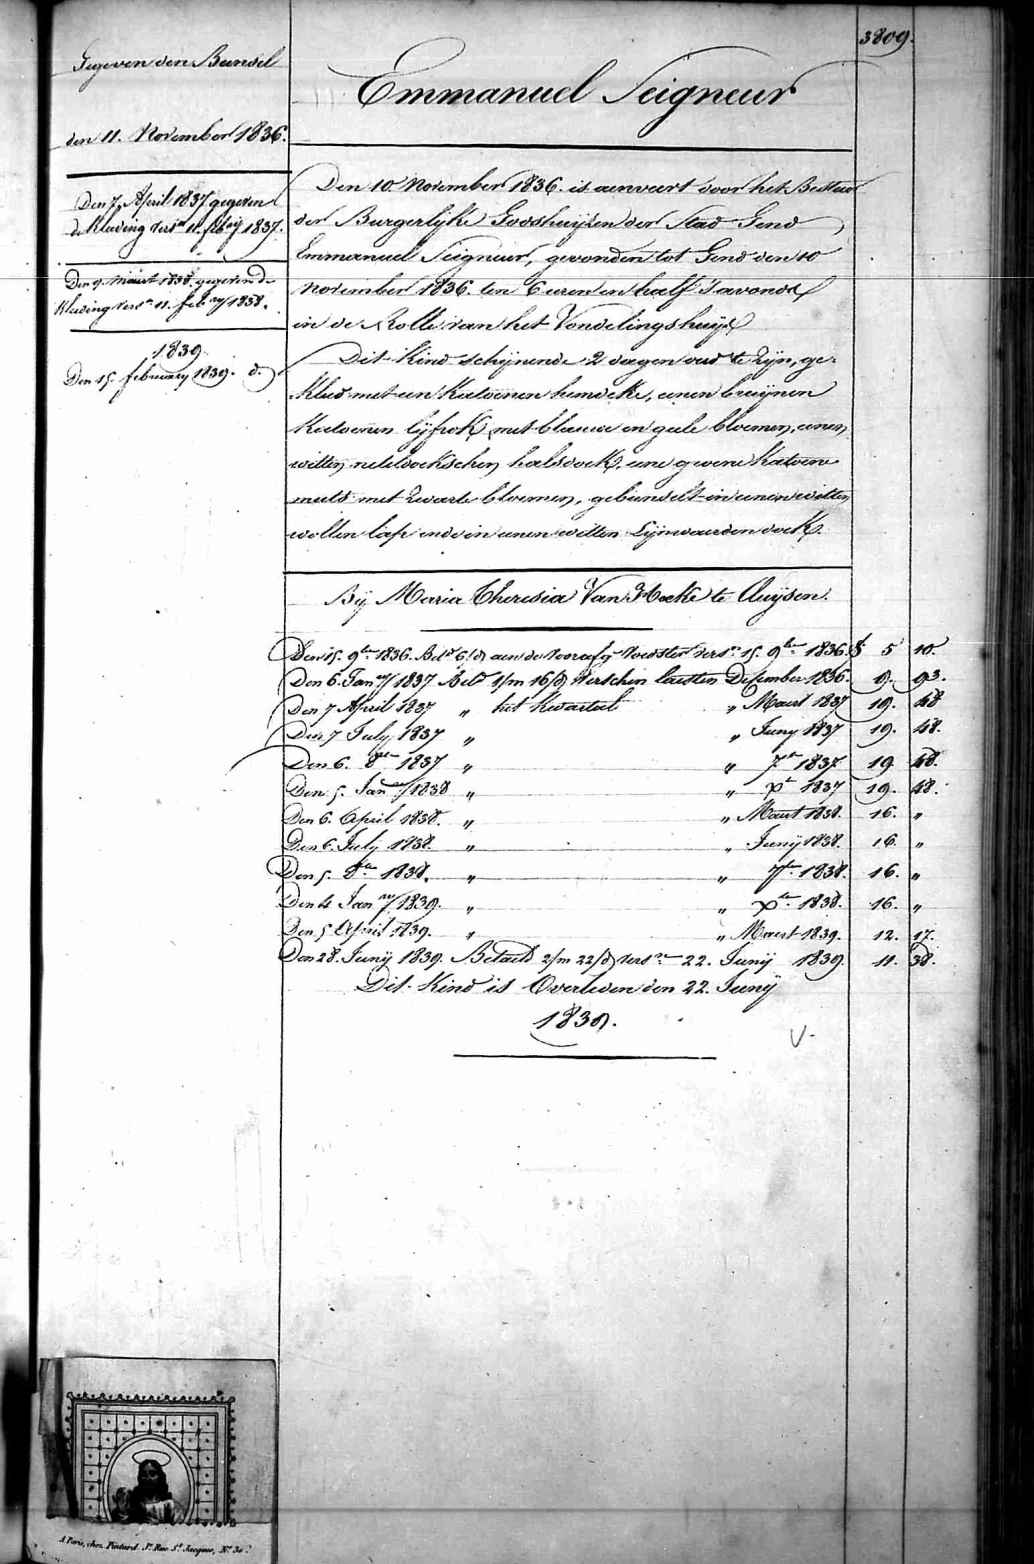 3809.
Gegeven den Bundel
den 11. November 1836.
Den 7. April 1837 gegeven
de Kleeding versn 11 febry 1837.
Den 9. Maart 1838. gegeven de
Kleeding versn 11. febry 1838.
1839.
Den 15. february 1839. d.
Emmanuel Seigneur
Den 10 November 1836. is aenveert door het Bestuur
der Burgerlyke Godshuijsen der Stad Gend
Emmanuel Seigneur, gevonden tot Gend den 10
November 1836. ten 6 uren en half s'avonds
in de Rolle van het Vondelingshuijs
Dit Kind schijnende 2 dagen oud te zijn, ge-
kleed met een Katoenen hemdeke, eenen bruijnen
Katoenen lijfrok met blauwe en geele bloemen, eenen
witten neteldoekschen halsdoek, eene geene katoene
muts met zwarte bloemen, gebundelt in eenen witten
wollen lap ende in eenen witten Lijnwaerden doek.
Bij Maria Theresia Van Hecke te Cluijsen.
Den 15. 9ber 1836. Betd 6/d aen de voorafg voedster versn 15. 9ber 1836. f 5 10.
Den 6. Janry 1837 Betd 1/m 16/d Verschin laesten December 1836. 9. 93.
Den 7 April 1837 „ het kwartael „ Maert 1837 19. 48
Den 7 July 1837 „ „ Juny 1837 19. 48.
Den 6. 8ber 1837 „ „ 7br 1837 19 48.
Den 5. Janry 1838 „ „ Xbr 1837 19. 48.
Den 6. April 1838. „ „ Maert 1838. 16. „
Den 6. July 1838. „ „ Junij 1838. 16. „
Den 5. 8ber 1838. „ „ 7ber 1838. 16. „
Den 4 Janry 1839. „ „ Xber 1838. 16. „
Den 5 April 1839. „ „ Maert 1839. 12. 17.
Den 28. Junij 1839. Betaeld 2/m 22/d versn 22. Junij 1839. 11. 38.
Dit Kind is Overleden den 22. Junij
1839.
V.
A Paris, chez Pintard Jr Rue St Jacques, No 30.